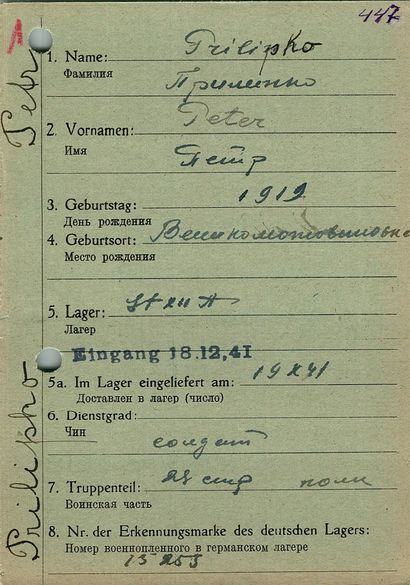 1
447
1. Name: Prilipko
Фамилия Прилипко
2. Vornamen: Peter
Имя Петр
3. Geburtstag: 1919
День рождения
4. Geburtsort:
Место рождения
5. Lager:
Лагер
Eingang 18.12.41
5a. Im Lager eingeliefert am:
Доставлен в лагер (число)
6. Dienstgrad:
Чин солдат
7. Truppenteil: полк
Воинская часть
8. Nr. der Erkennungsmarke des deutschen Lagers:
Номер военнопленного в германском лагере
15253
Prilipko Petr